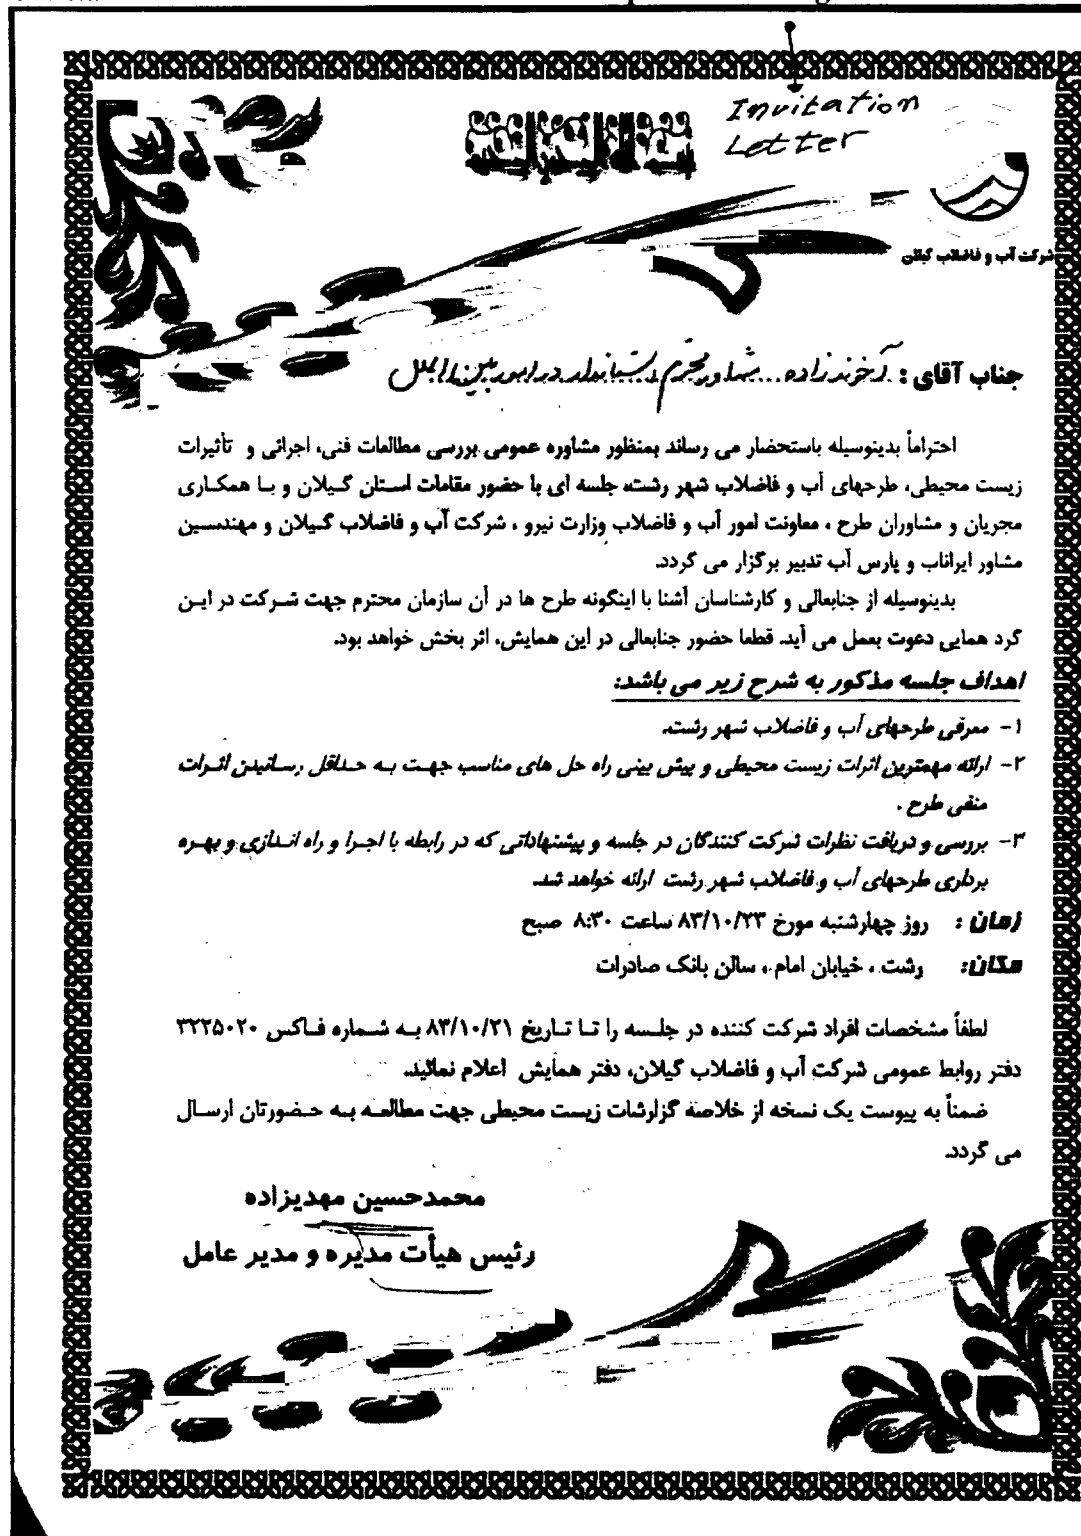 Invitation
Letter
شرکت آب و فاضلاب گیلان
جناب آقای : آخوندزاده ... مشاور محترم استاندار در امور بین الملل
احتراماً بدینوسیله باستحضار می رساند بمنظور مشاوره عمومی بررسی مطالعات فنی، اجرائی و تأثیرات
زیست محیطی، طرحهای آب و فاضلاب شهر رشت، جلسه ای با حضور مقامات استان گیلان و با همکاری
مجریان و مشاوران طرح ، معاونت امور آب و فاضلاب وزارت نیرو ، شرکت آب و فاضلاب گیلان و مهندسین
مشاور ایراناب و پارس آب تدبیر برگزار می گردد.
بدینوسیله از جنابعالی و کارشناسان آشنا با اینگونه طرح ها در آن سازمان محترم جهت شرکت در این
گرد همایی دعوت بعمل می آید. قطعا حضور جنابعالی در این همایش، اثر بخش خواهد بود.
اهداف جلسه مذکور به شرح زیر می باشد:
۱- معرفی طرحهای آب و فاضلاب شهر رشت.
۲- ارائه مهمترین اثرات زیست محیطی و پیش بینی راه حل های مناسب جهت به حداقل رسانیدن اثرات
منفی طرح .
۳- بررسی و دریافت نظرات شرکت کنندگان در جلسه و پیشنهاداتی که در رابطه با اجرا و راه اندازی و بهره
برداری طرحهای آب و فاضلاب شهر رشت ارائه خواهد شد.
زمان : روز چهارشنبه مورخ ۸۳/۱۰/۲۳ ساعت ۸:۳۰ صبح
مکان: رشت ، خیابان امام ، سالن بانک صادرات
لطفاً مشخصات افراد شرکت کننده در جلسه را تا تاریخ ۸۳/۱۰/۲۱ به شماره فاکس ۳۲۲۵۰۲۰
دفتر روابط عمومی شرکت آب و فاضلاب گیلان، دفتر همایش اعلام نمائید.
ضمناً به پیوست یک نسخه از خلاصه گزارشات زیست محیطی جهت مطالعه به حضورتان ارسال
می گردد.
محمدحسین مهدیزاده
رئیس هیأت مدیره و مدیر عامل